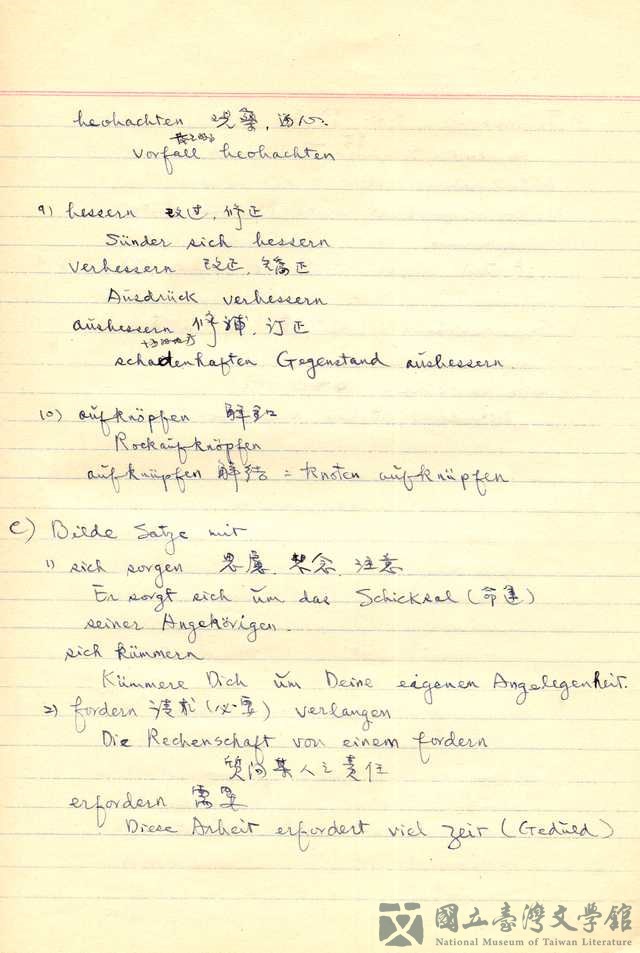 beobachten 观察,
Vorfall beobachten
9) bessern 改过, 修正
Sünder sich bessern
verbessern 改正, 矯正
Ausdrück verbessern
ausbessern 修補, 订正
schadenhaften Gegenstand ausbessern.
10) aufknöpfen 解釦
Rockaufknöpfen
aufknüpfen 解结 = Knoten aufknüpfen
e) Bilde Satze mit
1) sich sorgen 思慮, 架念, 注意
Er sorgt sich um das Schicksal (命運)
seiner Angehörigen.
sich kümmern
Kümmere Dich um Deine eigenen Angelegenheit.
2) fordern 请求 (必要) verlangen
Die Rechenschaft von einem fordern
質问某人之責任
erfordern 需要
Diese Arbeit erfordert viel Zeit (Geduld)
國立臺灣文學館
National Museum of Taiwan Literature